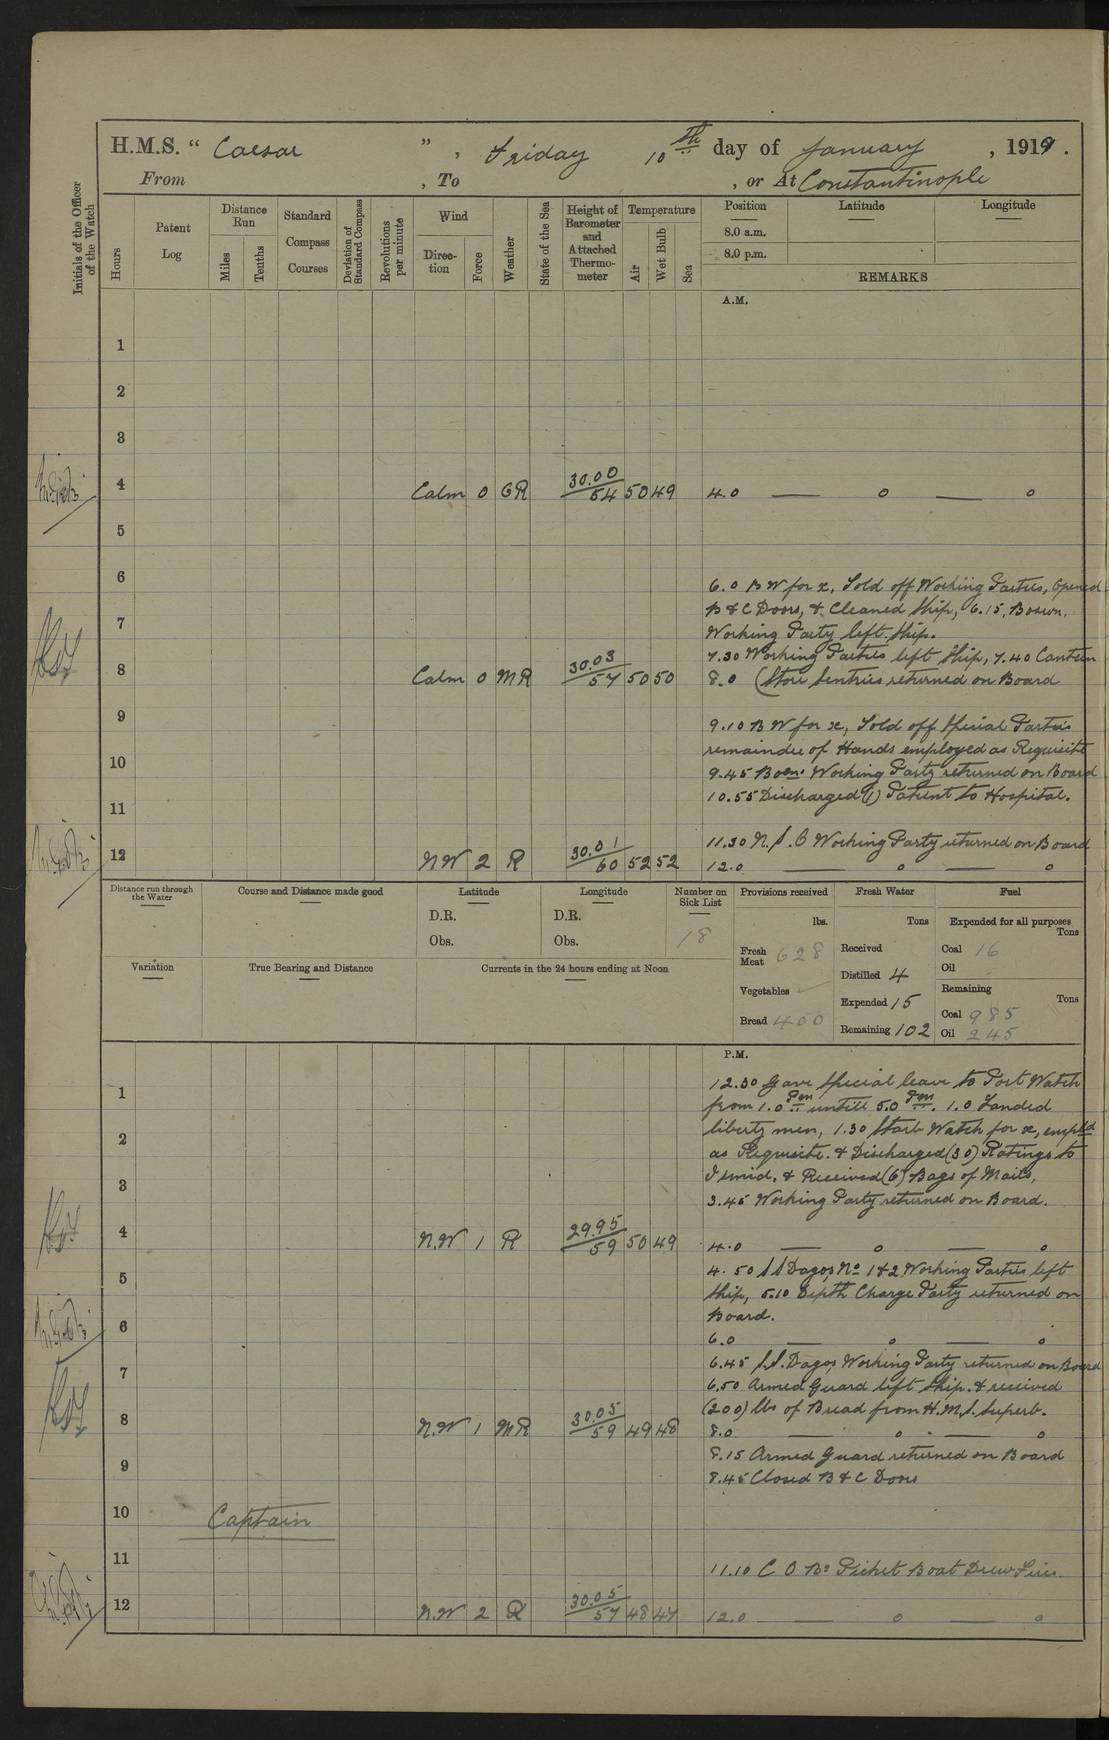 H.M.S. " Caesar ", Friday 10th day of January, 1919.
From , To , or At Constantinople
Initials of the Officer of the Watch
Hours
Patent Log
Distance Run
Miles
Tenths
Standard Compass Courses
Deviation of Standard Compass
Revolutions per minute
Wind
Direction
Force
Weather
State of the Sea
Height of Barometer and Attached Thermometer
Temperature
Air
Wet Bulb
Sea
Position Latitude Longitude
8.0 a.m.
8.0 p.m.
REMARKS
A.M.
1
2
3
4 Calm 0 OR 30.00/54 50 49 4.0 — o — o
5
6 6.0 B W for x, Told off Working Parties, Opened
B & C Doors, & Cleaned Ship, 6.15, Boswn.
7 Working Party left Ship.
7.30 Working Parties left Ship, 7.40 Canteen
8 Calm 0 MR 30.03/57 50 50 8.0 (Store Sentries returned on Board
9 9.10 B W for x, Told off Special Parties
remainder of Hands employed as Requisite
10 9.45 Bosn. Working Party returned on Board
10.55 Discharged (1) Patient to Hospital.
11
11.30 N.S.O Working Party returned on Board
12 NW 2 R 30.01/60 52 52 12.0 — o — o
Distance run through the Water
Course and Distance made good
Latitude
D.R.
Obs.
Longitude
D.R.
Obs.
Number on Sick List
18
Provisions received
lbs.
Fresh Meat 628
Vegetables
Bread 400
Fresh Water
Tons
Received
Distilled 4
Expended 15
Remaining 102
Fuel
Expended for all purposes
Tons
Coal 16
Oil
Remaining
Tons
Coal 985
Oil 245
Variation
True Bearing and Distance
Currents in the 24 hours ending at Noon
P.M.
12.30 Gave Special leave to Port Watch
1 from 1.0 pm untill 5.0 pm. 1.0 Landed
2 liberty men, 1.30 Starb Watch for x, empld
as Requisite. & Discharged (30) Ratings to
3 Ismid, & Received (6) Bags of Mails,
3.45 Working Party returned on Board.
4 N.W 1 R 29.95/59 50 49 4.0 — o — o
5 4.50 S S Dagos No 1 & 2 Working Parties left
Ship, 5.10 Depth Charge Party returned on
6 Board.
6.0 — o — o
7 6.45 S.S. Dagos Working Party returned on Board
6.50 Armed Guard left Ship. & received
8 (200) lbs of Bread from H.M.S. Superb.
N.W 1 MR 30.05/59 49 48 8.0 — o — o
8.15 Armed Guard returned on Board
9 8.45 Closed B & C Doors
10 Captain
11 11.10 C O Bs Picket Boat Drew Fires.
12 N.W 2 R 30.05/57 48 47 12.0 — o — o